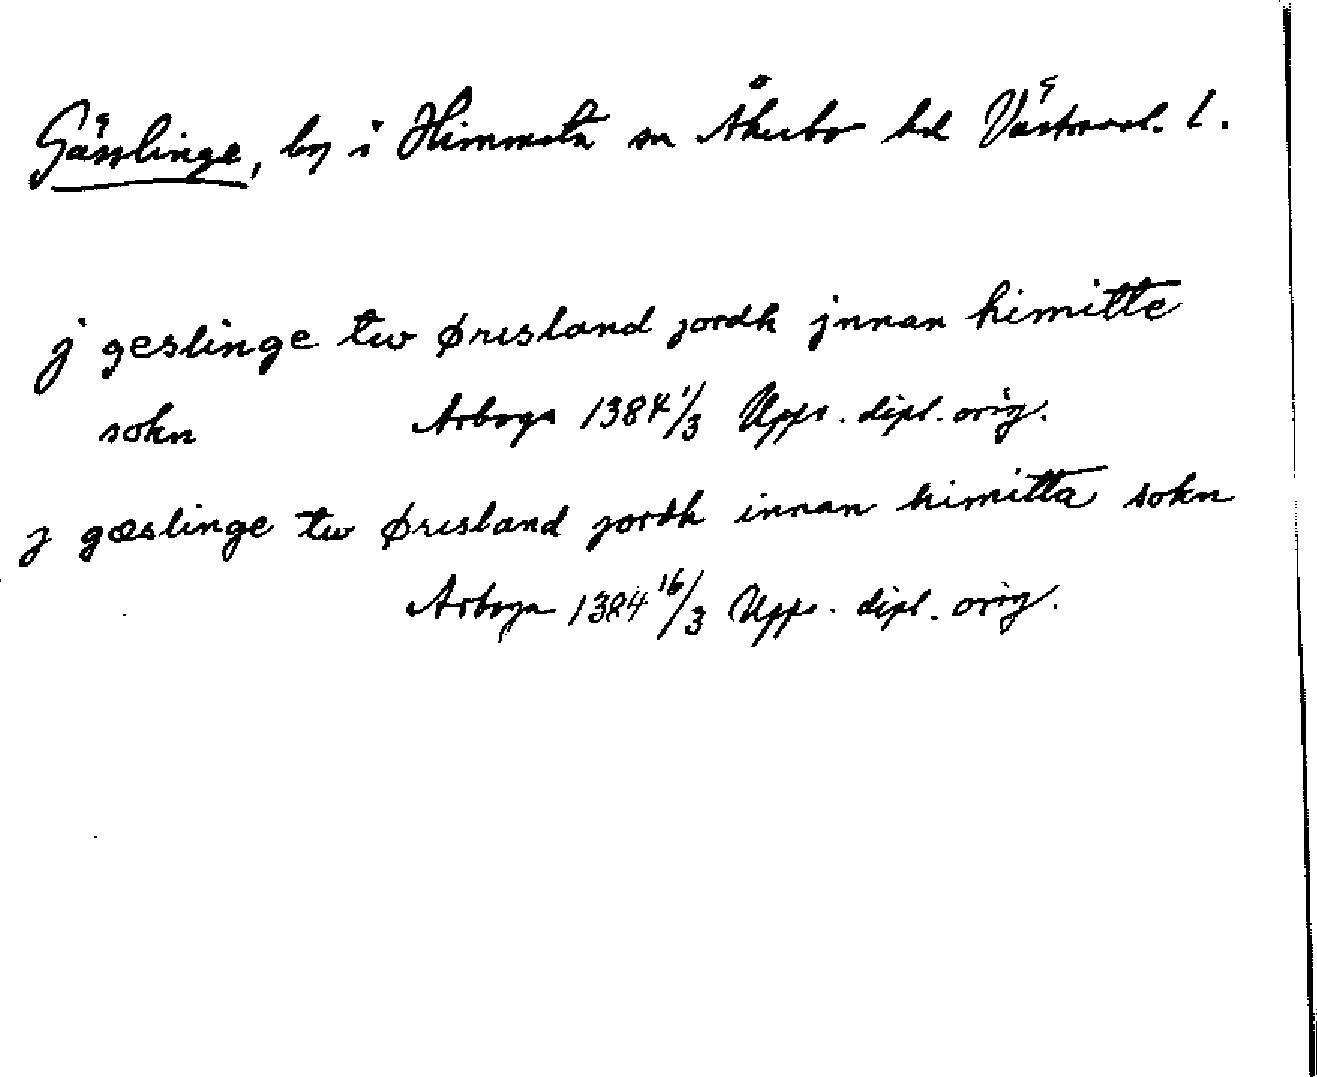 Gässlinge, by i Himmeta sn Åkerbo hd Västmanl. l.
j geslinge tw ørisland jordh jnnan himitte
sokn Arboga 1384 1/3 Upps. dipl. orig.
j gæslinge tw ørisland jordh innan himitta sokn
Arboga 1384 16/3 Upps. dipl. orig.